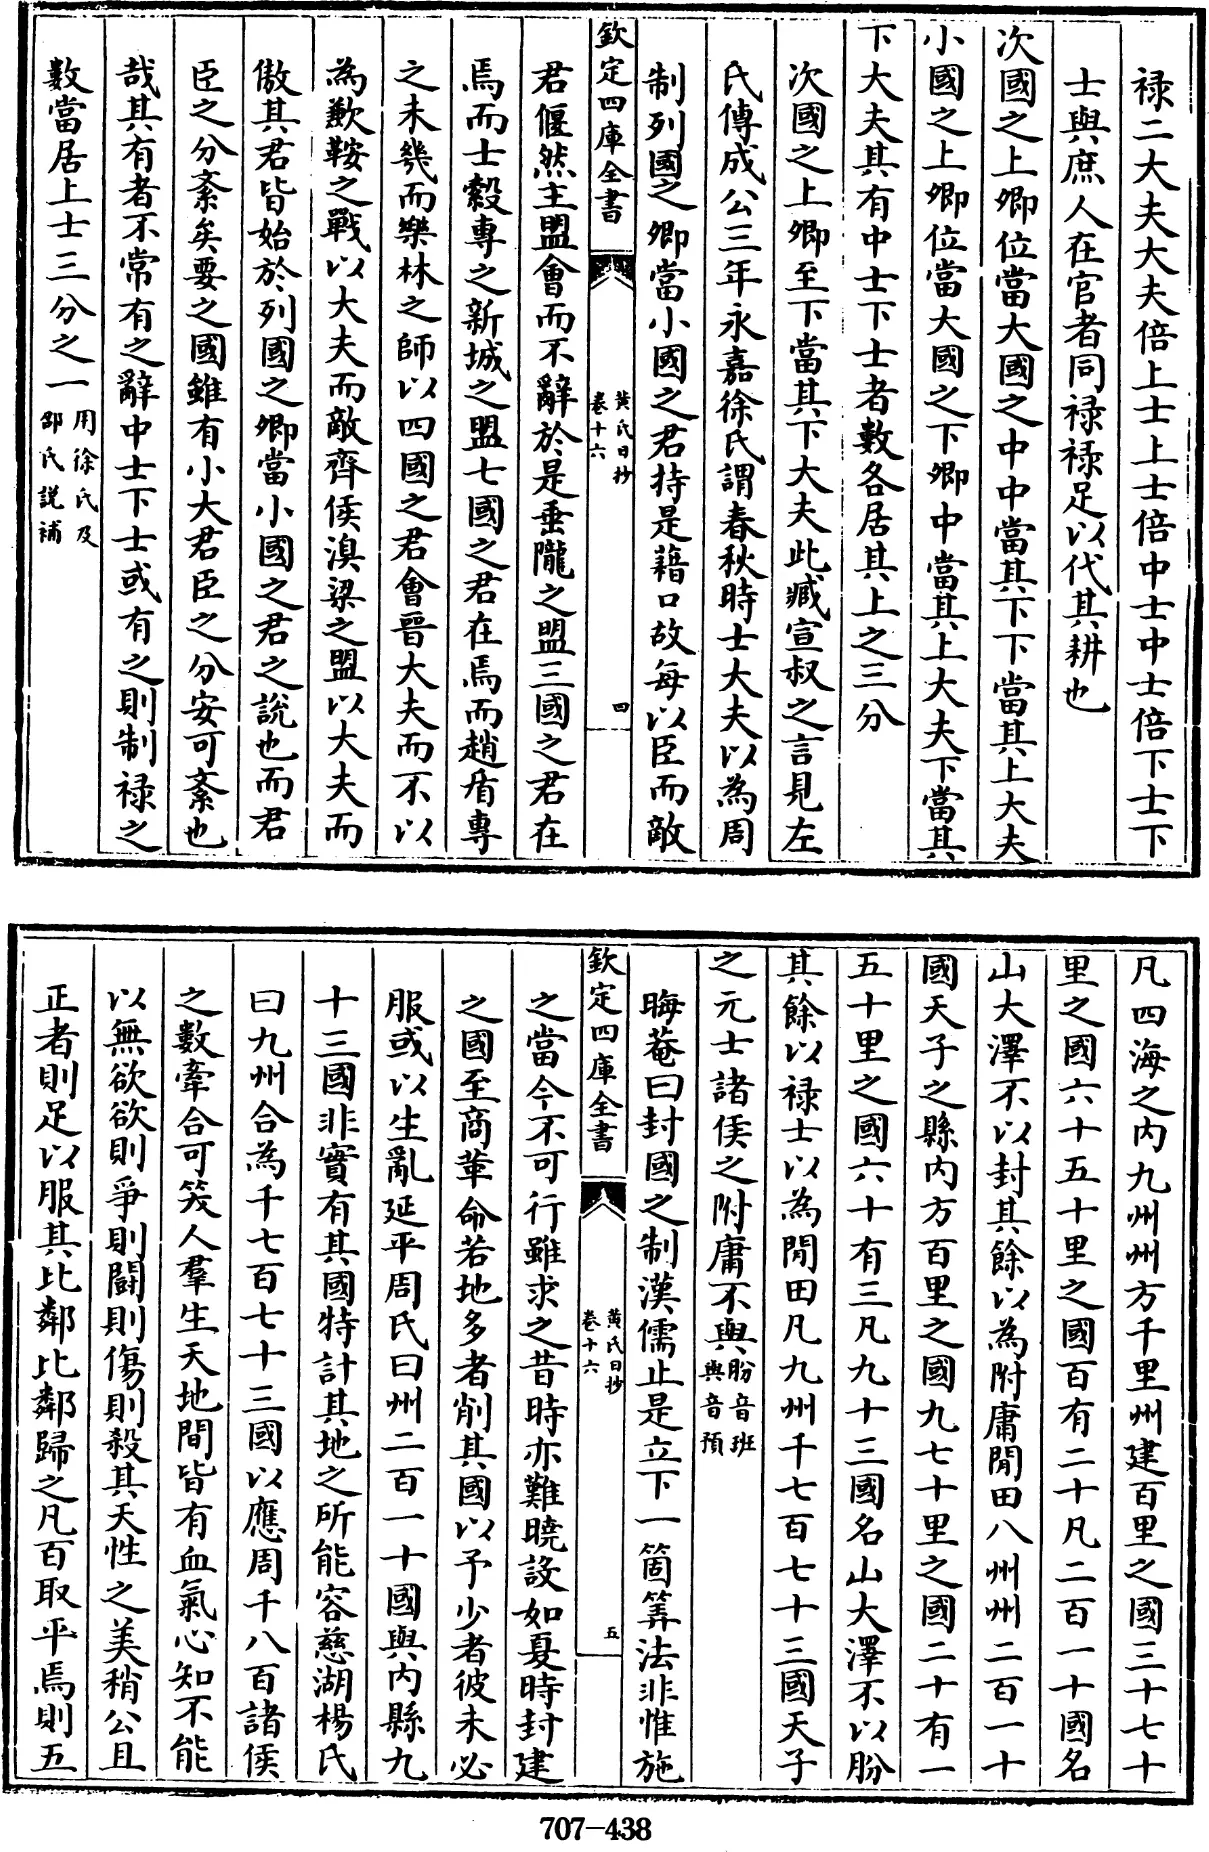 禄二大夫大夫倍上士上士倍中士中士倍下士下
士與庶人在官者同禄禄足以代其耕也
次國之上卿位當大國之中中當其下下當其上大夫
小國之上卿位當大國之下卿中當其上大夫下當其
下大夫其有中士下士者數各居其上之三分
次國之上卿至下當其下大夫此臧宣叔之言見左
氏傳成公三年永嘉徐氏謂春秋時士大夫以為周
制列國之卿當小國之君持是藉口故每以臣而敵
欽定四庫全書
黄氏日抄
卷十六
四
君偃然主盟會而不辭於是垂隴之盟三國之君在
焉而士縠專之新城之盟七國之君在焉而趙盾專
之未幾而棐林之師以四國之君會晉大夫而不以
為歉鞍之戰以大夫而敵齊侯溴梁之盟以大夫而
傲其君皆始於列國之卿當小國之君之說也而君
臣之分紊矣要之國雖有小大君臣之分安可紊也
哉其有者不常有之辭中士下士或有之則制禄之
數當居上士三分之一用徐氏及
邵氏說補
凡四海之内九州州方千里州建百里之國三十七十
里之國六十五十里之國百有二十凡二百一十國名
山大澤不以封其餘以為附庸閒田八州州二百一十
國天子之縣内方百里之國九七十里之國二十有一
五十里之國六十有三凡九十三國名山大澤不以朌
其餘以禄士以為閒田凡九州千七百七十三國天子
之元士諸侯之附庸不與朌音班
與音預
晦菴曰封國之制漢儒止是立下一箇筭法非惟施
欽定四庫全書
黄氏日抄
卷十六
五
之當今不可行雖求之昔時亦難曉設如夏時封建
之國至商革命若地多者削其國以予少者彼未必
服或以生亂延平周氏曰州二百一十國與内縣九
十三國非實有其國特計其地之所能容慈湖楊氏
曰九州合為千七百七十三國以應周千八百諸侯
之數牽合可笑人羣生天地間皆有血氣心知不能
以無欲欲則爭則鬭則傷則殺其天性之美稍公且
正者則足以服其比鄰比鄰歸之凡百取平焉則五
707-438